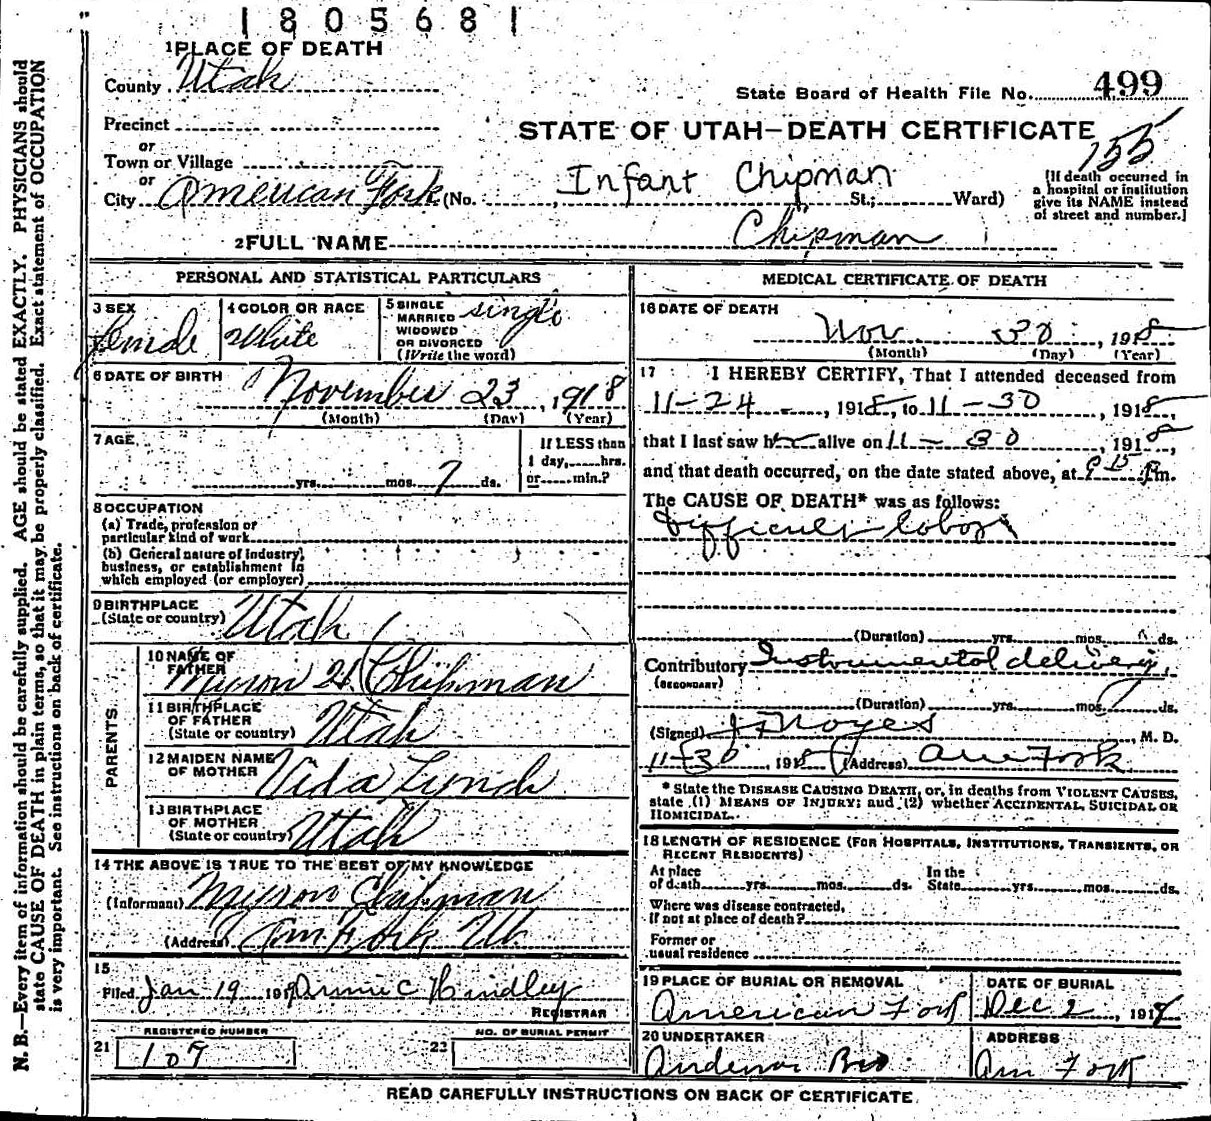 1805681
1 PLACE OF DEATH
County Utah
State Board of Health File No. 499
Precinct
STATE OF UTAH—DEATH CERTIFICATE
or
Town or Village
155
or
City American Fork (No. , Infant Chipman St.; Ward)
(If death occurred in
a hospital or institution
give its NAME instead
of street and number.]
2 FULL NAME Chipman
PERSONAL AND STATISTICAL PARTICULARS
3 SEX
female
4 COLOR OR RACE
White
5 SINGLE
MARRIED
WIDOWED
OR DIVORCED
(Write the word)
single
6 DATE OF BIRTH
November 23, 1918
(Month) (Day) (Year)
7 AGE
yrs. mos. 7 ds.
If LESS than
1 day, hrs.
or min.?
8 OCCUPATION
(a) Trade, profession or
particular kind of work
(b) General nature of industry,
business, or establishment in
which employed (or employer)
9 BIRTHPLACE
(State or country) Utah
PARENTS
10 NAME OF
FATHER
Myron H Chipman
11 BIRTHPLACE
OF FATHER
(State or country) Utah
12 MAIDEN NAME
OF MOTHER Vida Lynch
13 BIRTHPLACE
OF MOTHER
(State or country) Utah
14 THE ABOVE IS TRUE TO THE BEST OF MY KNOWLEDGE
(Informant) Myron Chipman
(Address) Am Fork Ut.
15
Filed Jan 19 191 C Hindley
REGISTRAR
REGISTERED NUMBER
21 109
NO. OF BURIAL PERMIT
22
MEDICAL CERTIFICATE OF DEATH
16 DATE OF DEATH
Nov 30, 1918
(Month) (Day) (Year)
17 I HEREBY CERTIFY, That I attended deceased from
11-24, 1918, to 11-30, 1918,
that I last saw h alive on 11-30, 1918,
and that death occurred, on the date stated above, at 9 15 P m.
The CAUSE OF DEATH* was as follows:
Difficult labor
(Duration) yrs. mos. ds.
Contributory Instrumental delivery,
(SECONDARY)
(Duration) yrs. mos. 7 ds.
(Signed) Noyes, M. D.
11-30, 1918 (Address) Am Fork
* State the DISEASE CAUSING DEATH, or, in deaths from VIOLENT CAUSES,
state (1) MEANS OF INJURY; and (2) whether ACCIDENTAL, SUICIDAL OR
HOMICIDAL.
18 LENGTH OF RESIDENCE (FOR HOSPITALS, INSTITUTIONS, TRANSIENTS, OR
RECENT RESIDENTS)
At place
of death yrs. mos. ds.
In the
State yrs. mos. ds.
Where was disease contracted,
if not at place of death?
Former or
usual residence
19 PLACE OF BURIAL OR REMOVAL
American Fork
DATE OF BURIAL
Dec 2, 1918
20 UNDERTAKER
Anderson Bro
ADDRESS
Am Fork
READ CAREFULLY INSTRUCTIONS ON BACK OF CERTIFICATE
N. B.—Every item of information should be carefully supplied. AGE should be stated EXACTLY. PHYSICIANS should
state CAUSE OF DEATH in plain terms, so that it may be properly classified. Exact statement of OCCUPATION
is very important. See instructions on back of certificate.